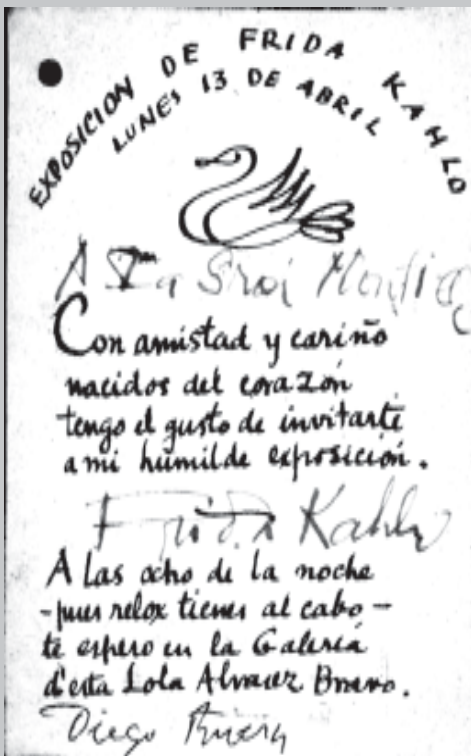 EXPOSICION DE FRIDA KAHLO
LUNES 13 DE ABRIL
A
Con amistad y cariño
nacidos del corazón
tengo el gusto de invitarte
a mi humilde exposición.
Frida Kahlo
A las ocho de la noche
-pues relox tienes al cabo-
te espero en la Galería
d'esta Lola Alvarez Bravo.
Diego Rivera